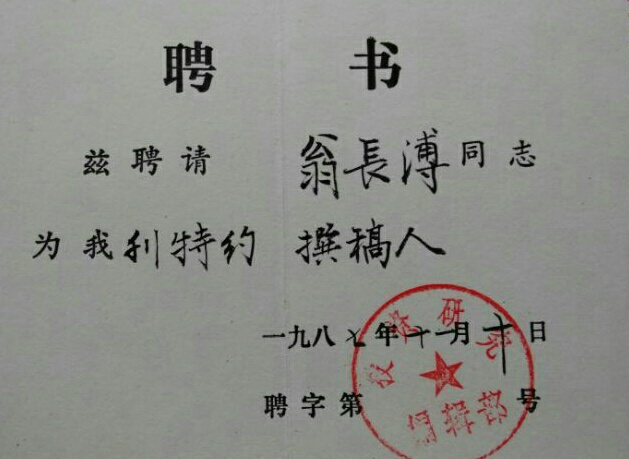 聘 书
兹聘请 翁長溥同志
为我刊特约 撰稿人
一九八七年十一月十日
聘字第 号
研究
编辑部